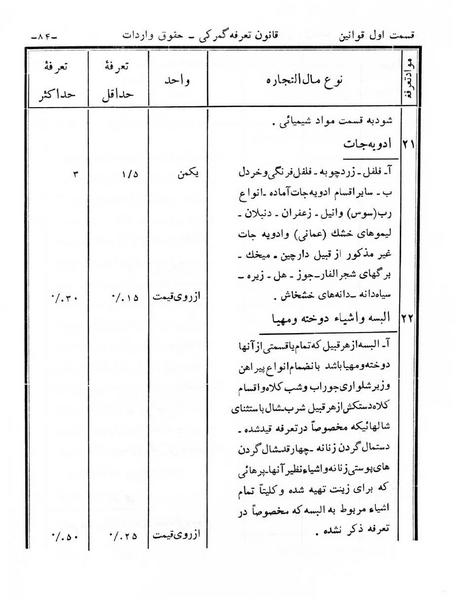 قسمت اول قوانین
قانون تعرفه گمرکی ـ حقوق واردات
ـ۸۴ـ
مواد تعرفه
نوع مال التجاره
واحد
تعرفهٔ حداقل
تعرفهٔ حداکثر
شود به قسمت مواد شیمیائی .
۲۱
ادویه جات
آـ فلفل ـ زردچوبه ـ فلفل فرنگی و خردل
یکمن
۱/۵
۳
ب ـ سایر اقسام ادویه جات آماده ـ انواع
رب (سوس) وانیل ـ زعفران ـ دنبلان ـ
لیموهای خشک (عمانی) وادویه جات
غیر مذکور از قبیل دارچین ـ میخک ـ
برگهای شجرالفار ـ جوز ـ هل ـ زیره ـ
سیاه دانه ـ دانه های خشخاش .
ازروی قیمت
۱۵ ./.
۳۰ ./.
۲۲
البسه و اشیاء دوخته و مهیا
آـ البسه از هر قبیل که تمام یا قسمتی از آنها
دوخته و مهیا باشد با نضمام انواع پیراهن
وزیر شلواری جوراب و شب کلاه و اقسام
کلاه دستکش از هر قبیل شرب ـ شال با ستثنای
شالهائیکه مخصوصاً در تعرفه قید شده ـ
دستمال گردن زنانه ـ چهارقد ـ شال گردن
های پوستی زنانه و اشیاء نظیر آنها ـ پرهائی
که برای زینت تهیه شده و کلیتاً تمام
اشیاء مربوط به البسه که مخصوصاً در
تعرفه ذکر نشده .
ازروی قیمت
۲۵ ./.
۵۰ ./.